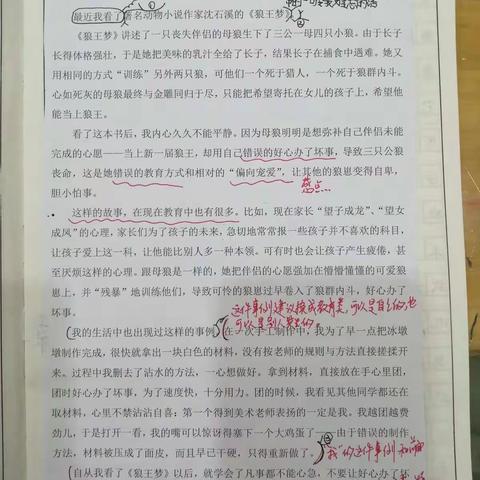 最近我看了著名动物小说作家沈石溪的《狼王梦》
《狼王梦》讲述了一只丧失伴侣的母狼生下了三公一母四只小狼。由于长子
长得体格强壮,于是她把美味的乳汁全给了长子,结果长子在捕食中遇难。她又
用相同的方式“训练”另外两只狼,可他们一个死于猎人,一个死于狼群内斗。
心如死灰的母狼最终与金雕同归于尽,只能把希望寄托在女儿的孩子上,希望他
能当上狼王。
看了这本书后,我内心久久不能平静。因为母狼明明是想弥补自己伴侣未能
完成的心愿——当上新一届狼王,却用自己错误的好心办了坏事,导致三只公狼
丧命,这是她错误的教育方式和相对的“偏向宠爱”,让其他的狼崽变得自卑,
胆小怕事。
这样的故事,在现在教育中也有很多。比如,现在家长“望子成龙”、“望女
成凤”的心理,家长们为了孩子的未来,急切地常常报一些孩子并不喜欢的科目,
让孩子爱上这一科,让他能比别人多一种本领。可有时也会让孩子产生疲倦,甚
至厌烦这样的心理。跟母狼是一样的,她把伴侣的心愿强加在懵懵懂懂的可爱狼
崽上,并“残暴”地训练他们,导致可怜的狼崽过早卷入了狼群内斗,好心办了
坏事。
这件事例建议换成教育类,可以是自己的,也
可以是别人家的。
(我的生活中也出现过这样的事例)在一次手工制作中,我为了早一点把冰墩
墩制作完成,很快就拿出一块白色的材料,没有按老师的规则与方法直接搓揉开
来。过程中我删去了沾水的方法,一心想做好。拿到材料,直接放在手心里团,
团时好心办了坏事,为了速度快,十分用力。团的时候,我看见其他同学都还在
取材料,心里不禁沾沾自喜:第一个得到美术老师表扬的一定是我。我越团越费
劲儿,于是打开一看,我的嘴可以惊讶得塞下一个大鸡蛋了——由于错误的制作
方法,材料被压成了面皮,而且早已干硬,只得重新做了。
我的这件事例和
(自从我看了《狼王梦》以后,就学会了凡事都不能心急,不要让好心办了坏